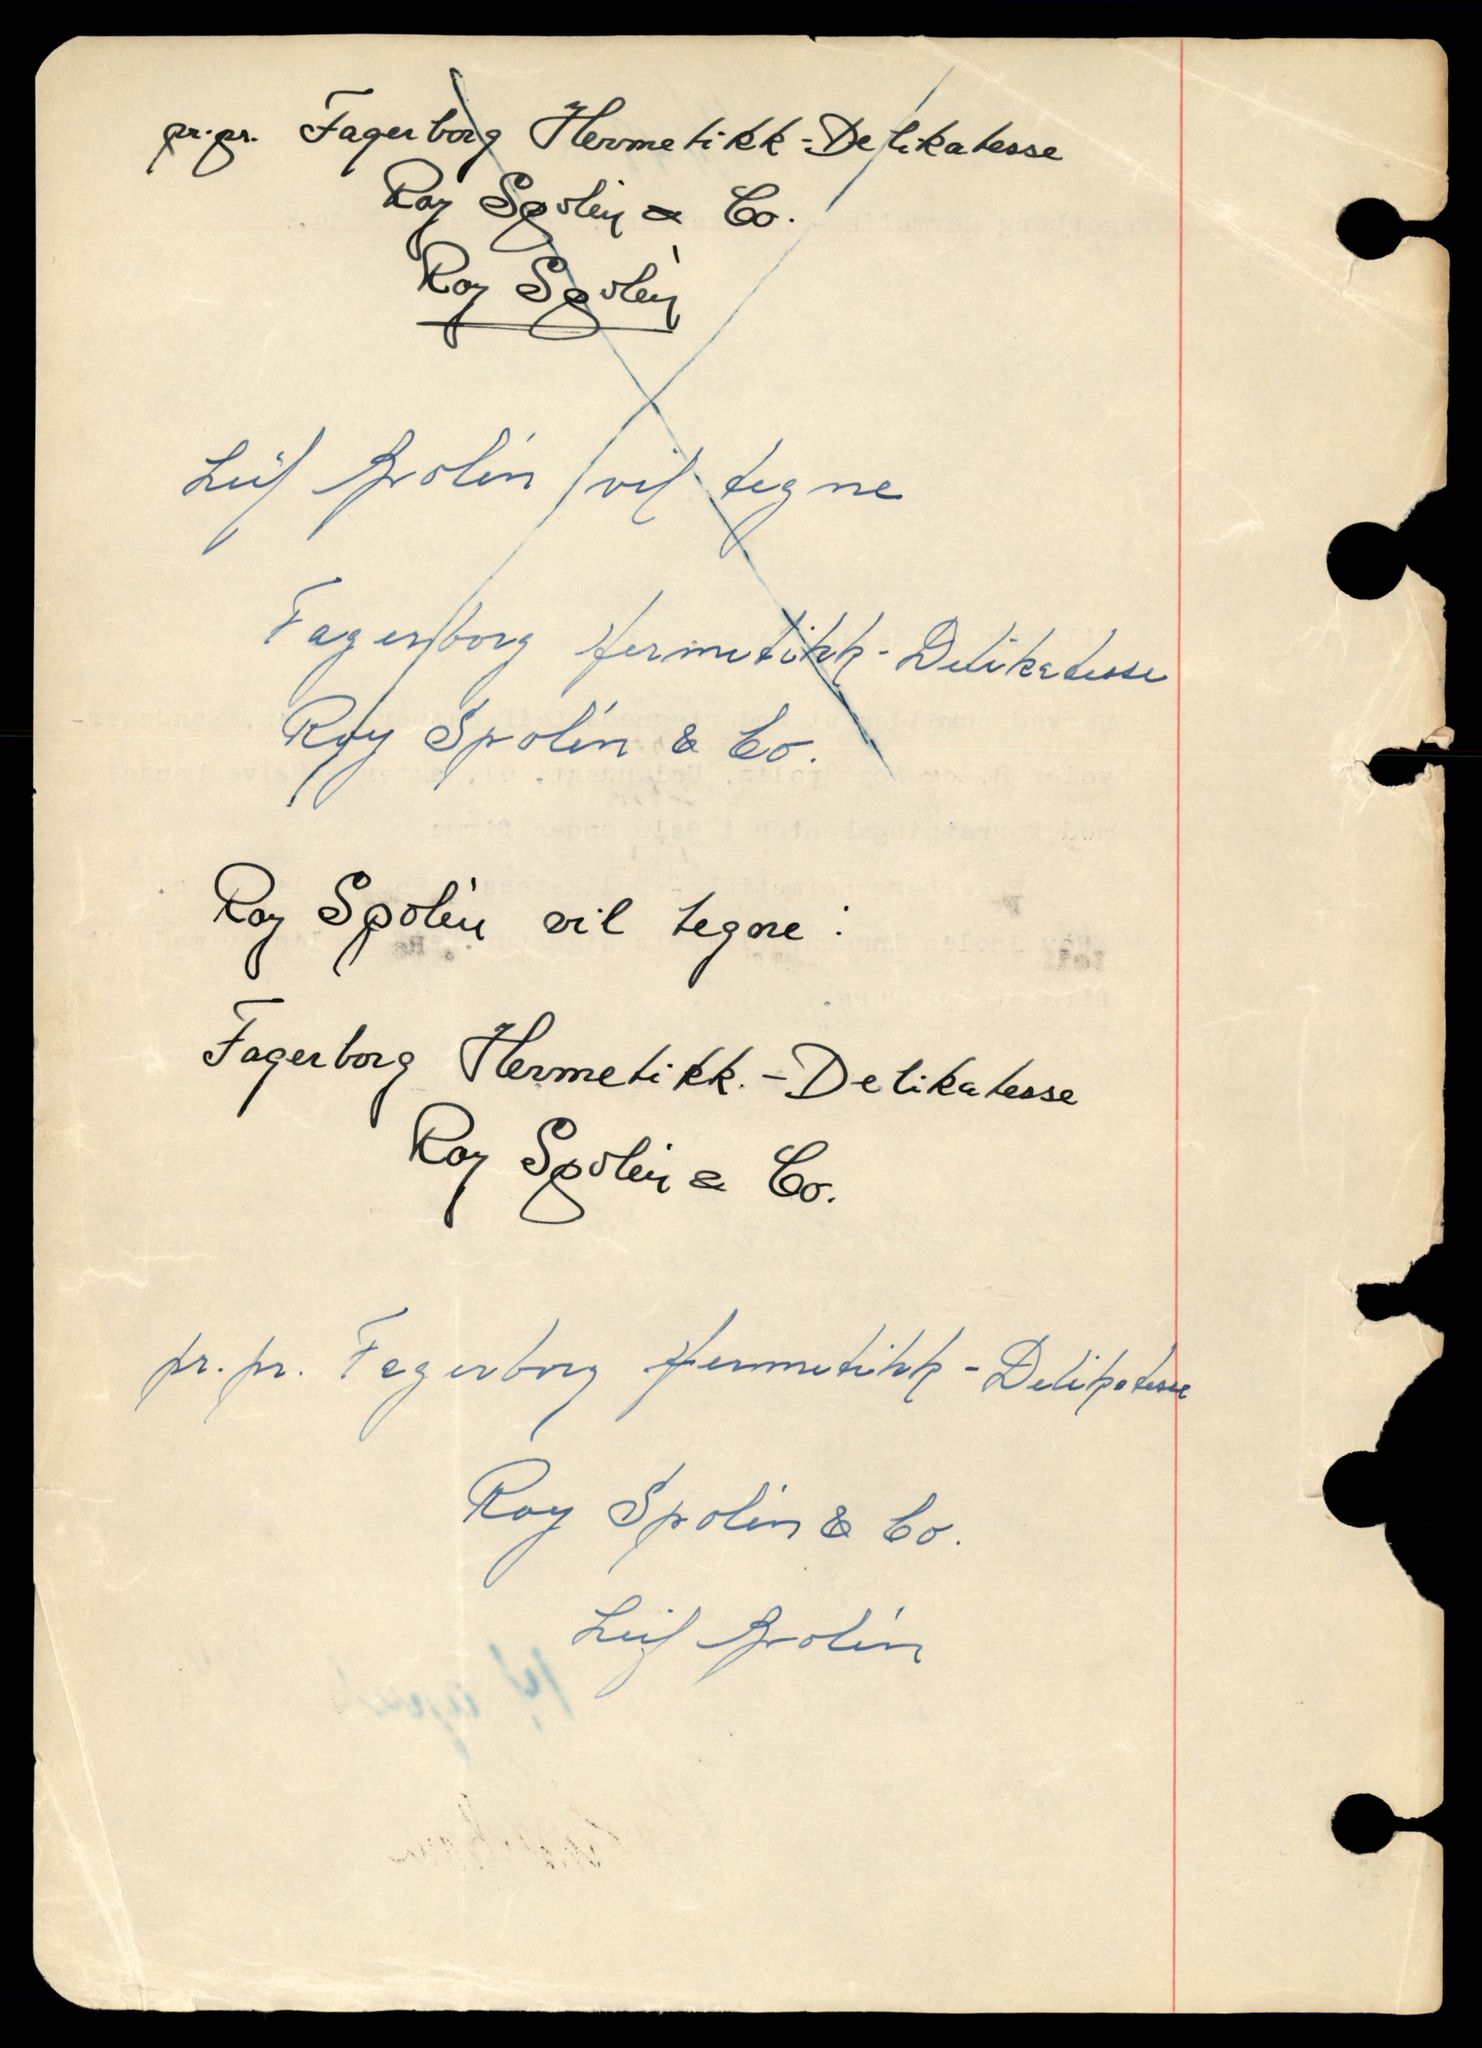 pr. pr. Fagerborg Hermetikk-Delikatesse
Roy Spolén & Co.
Roy Spolén
Leif Brolin vil tegne
Fagerborg Hermetikk-Delikatesse
Roy Spolin & Co.
Roy Spolén vil tegne:
Fagerborg Hermetikk.-Delikatesse
Roy Spolén & Co.
pr. pr. Fagerborg Hermetikk-Delikatesse
Roy Spolin & Co.
Leif Brolin